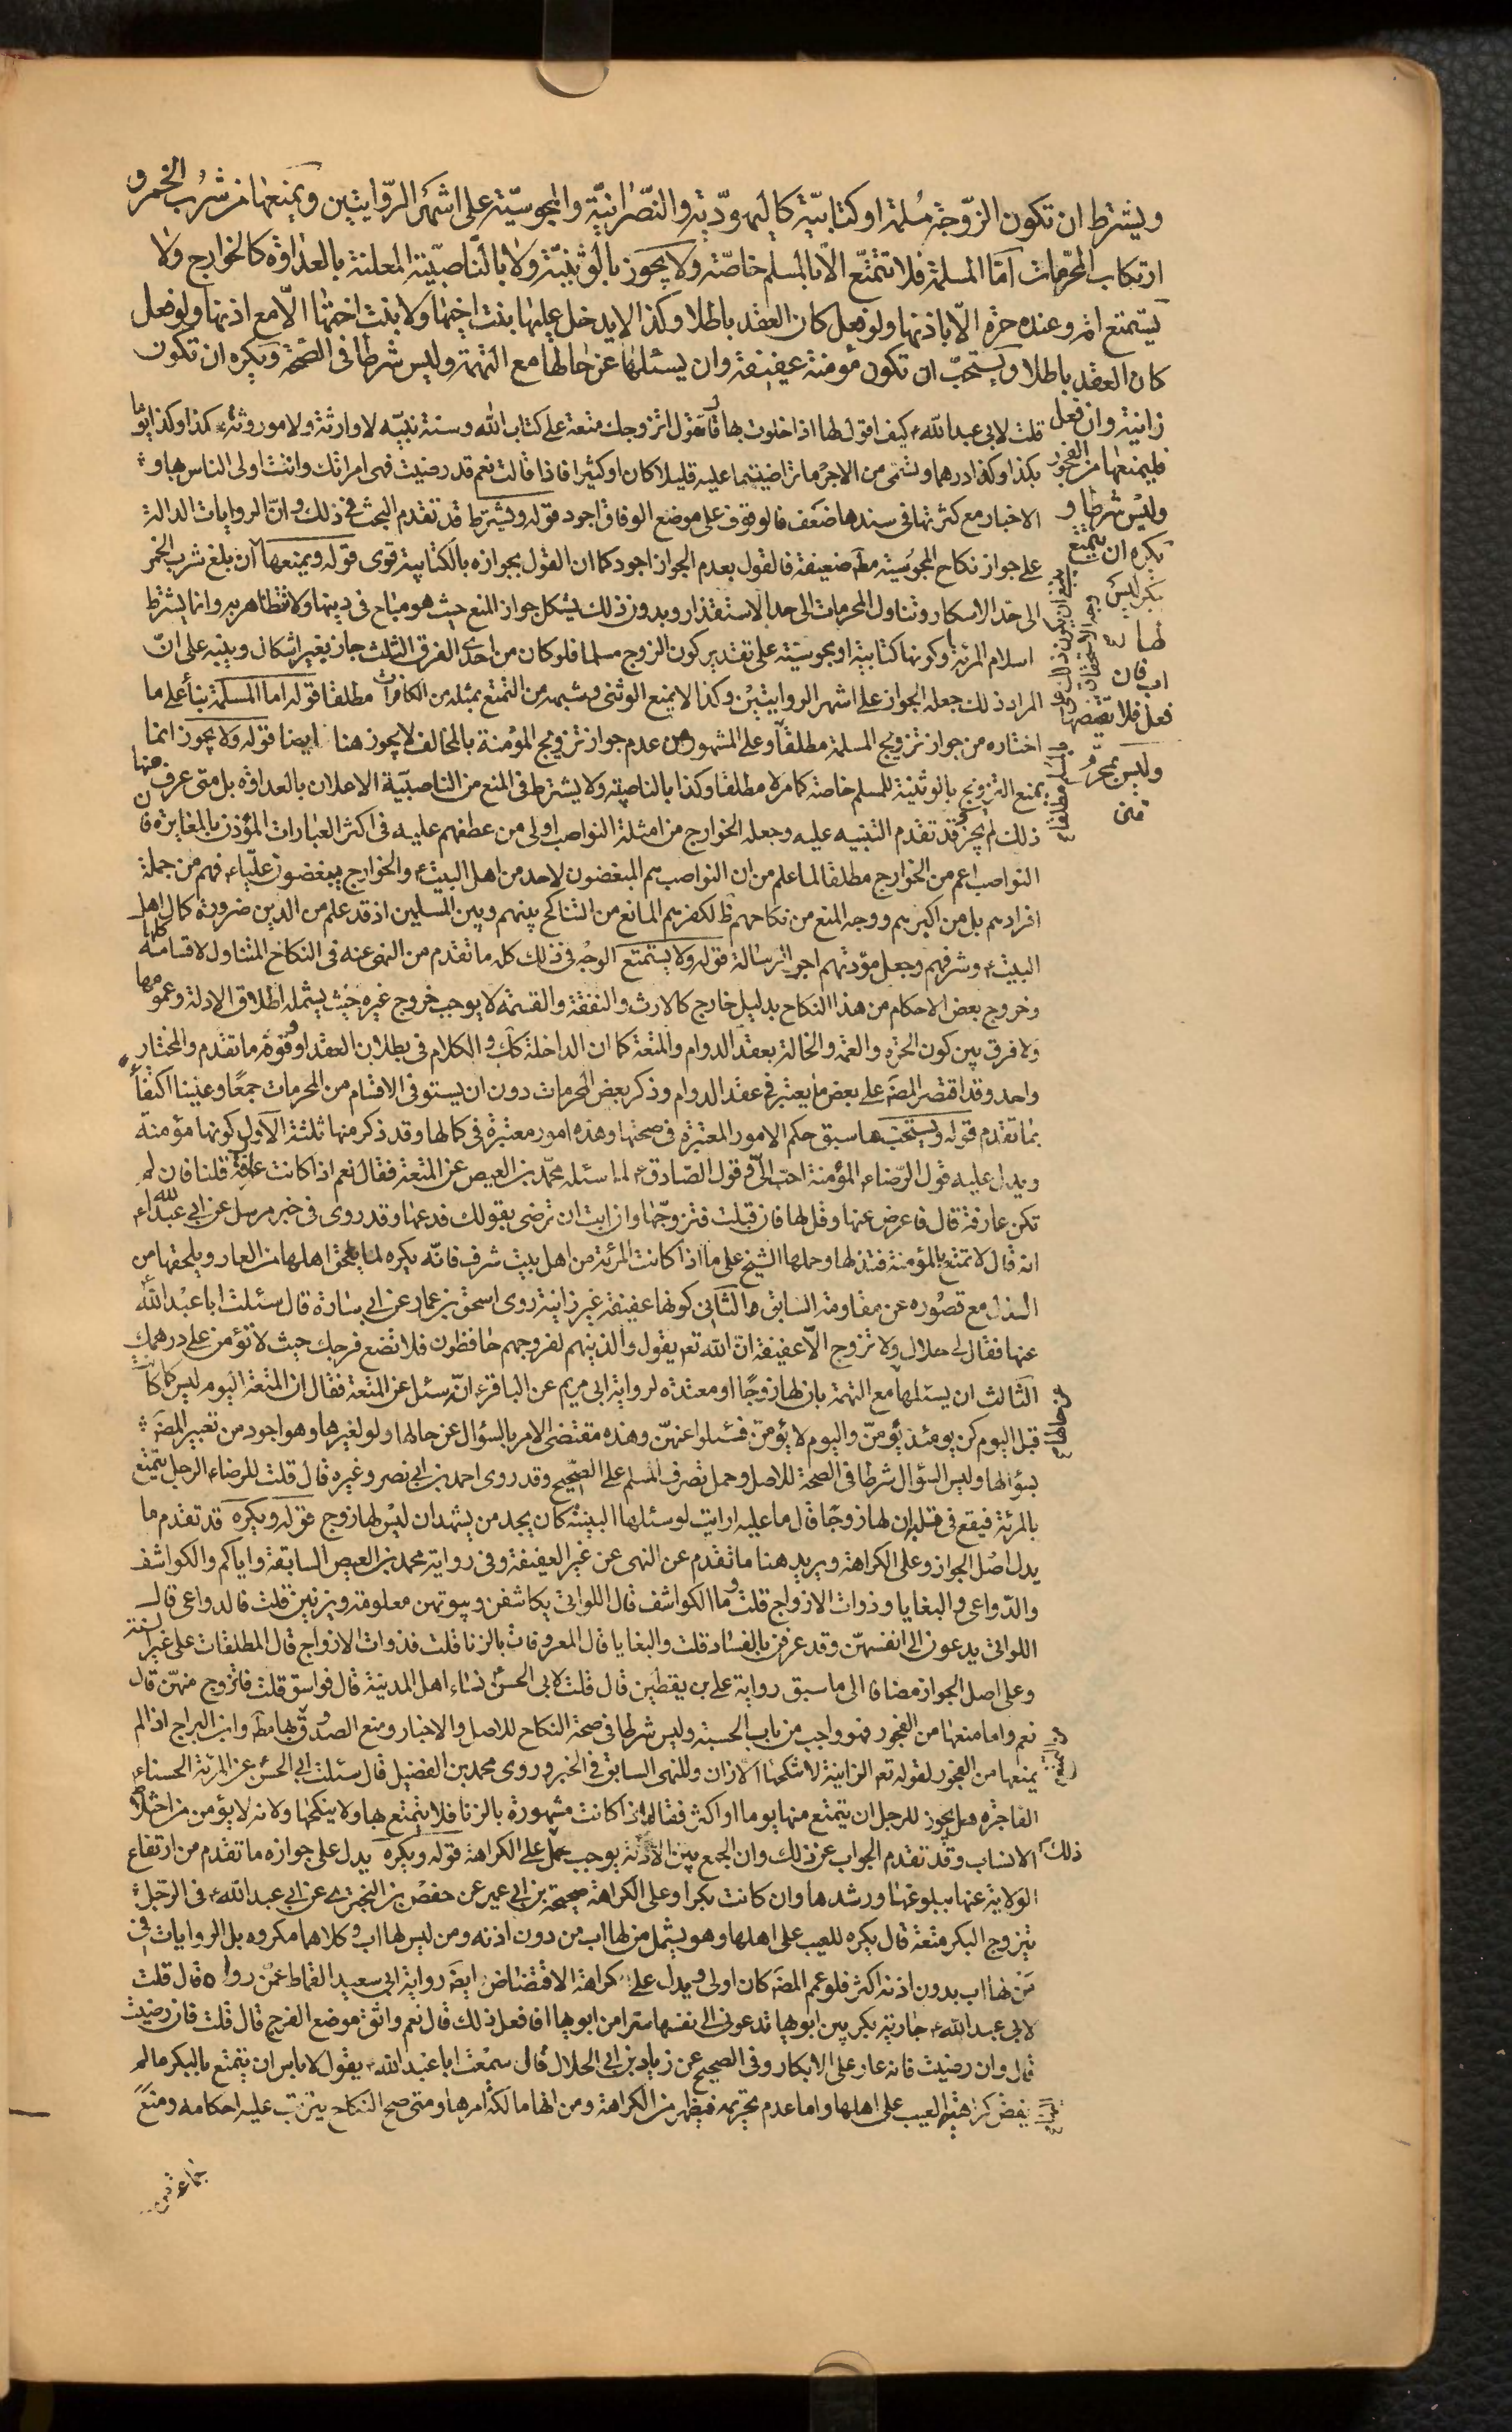 ويشترط ان تكون الزّوجة مُسلمة اوكتابيّة كاليهوديّة والنّصرانيّة والمجوسيّة على اشهَر الرّوايتين ويمنعها من شرُب الخمر و
ارتكاب المحرّمات امّا المسلمة فلا تتمتّع الّا بالمسلم خاصّة ولا يجوز بالوثنيّة ولا بالنّاصبيّة المعلنة بالعداوة كالخوارج ولا
يستمتع امة وعنده حرّة الّا باذنها ولو فعل كان العقد باطلا وكذا لا يدخل عليها بنت اخيها ولا بنت اختها الّا مع اذنها ولو فعل
كان العقد باطلا ويستحبّ ان تكون مؤمنة عفيفة وان يسئلها عن حالها مع التهمة وليس شرطا فى الصّحّة ويكره ان تكون
زانية وان فعل
فليمنعها من الفجور
وليس شرطا و
يكره ان يتمتع
ببكر ليس
لها
اب فان
فعل فلا يفتضها
وليس بمحرّم
متن
قلت لابى عبد اللّه ع كيف اقول لها اذا خلوت بها قال تقول اتزوجك متعة على كتاب اللّه وسنة نبيّه لا وارثة ولا موروثة كذا وكذا يوما
بكذا وكذا درهما وتسمى من الاجر ما تراضيتما عليه قليلا كان او كثيرا فاذا قالت نعم قد رضيت فهى امراتك وانت اولى الناس بها و
الاخبار مع كثرتها فى سندها ضعف فالوقوف على موضع الوفاق اجود قوله ويشترط قد تقدم البحث فى ذلك وانّ الروايات الدالة
على جواز نكاح المجوسية مط ضعيفة فالقول بعدم الجواز اجود كما ان القول بجوازه بالكتابية قوى قوله ويمنعها ان بلغ شرب الخمر
الى حد الاسكار وتناول المحرمات الى حد الاستقذار وبدون ذلك يشكل جواز المنع حيث هو مباح فى دينها ولا تتظاهر به وانما يشترط
اسلام المرئة او كونها كتابية او مجوسية على تقدير كون الزوج مسلما فلو كان من احدى الفرق الثلث جاز بغير اشكال وينبه على انّ
المراد ذلك جعله الجواز على اشهر الروايتين وكذا لا يمنع الوثنى وشبهه من التمتع بمثله من الكافرات مطلقا قوله اما المسلمة بناء على ما
اختاره من جواز تزويج المسلمة مطلقا وعلى المشهور من عدم جواز تزويج المؤمنة بالمخالف لا يجوز هنا ايضا قوله ولا يجوز انما
يمنع التزويج بالوثنية للمسلم خاصة كما مر لا مطلقا وكذا بالناصبية ولا يشترط فى المنع من الناصبية الاعلان بالعداوة بل متى عرف منها
ذلك لم يجز وقد تقدم التنبيه عليه وجعله الخوارج من امثلة النواصب اولى من عطفهم عليه فى اكثر العبارات المؤذن بالمغايرة فان
النواصب اعم من الخوارج مطلقا لما علم من ان النواصب هم المبغضون لاحد من اهل البيت ع والخوارج يبغضون عليّا ع فهم من جملة
افرادهم بل من اكبرهم ووجه المنع من نكاحهم ظ لكفرهم المانع من التناكح بينهم وبين المسلمين اذ قد علم من الدين ضرورة كمال اهل
البيت ع وشرفهم وجعل مؤدتهم اجر الرسالة قوله ولا يستمتع الوجه فى ذلك كله ما تقدم من النهى عنه فى النكاح المتناول لاقسامه كلها
وخروج بعض الاحكام من هذا النكاح بدليل خارج كالارث والنفقة والقسمة لا يوجب خروج غيره حيث يشمله اطلاق الادلة وعمومها
ولا فرق بين كون الحرة والعمة والخالة بعقد الدوام والمتعة كما ان الداخلة كك والكلام فى بطلان العقد او وقوفه ما تقدم والمختار
واحد وقد اقتصر المصَ على بعض ما يعتبر فى عقد الدوام وذكر بعض المحرمات دون ان يستوفى الاقسام من المحرمات جمعًا وعينا اكتفاءً
بما تقدم قوله ويستحبّ ها سبق حكم الامور المعتبرة فى صحتها وهذه امور معتبرة فى كمالها وقد ذكر منها ثلثة الاول كونها مؤمنة
ويدل عليه قول الرّضا ع المؤمنة احبّ الىّ وقول الصّادق ع لما سئله محمّد بن العيص عن المتعة فقال نعم اذا كانت عارفة قلنا فان لم
تكن عارفة قال فاعرض عنها وقل لها فان قبلت فتزوّجها وان ابت ان ترضى بقولك فدعها وقد روى فى خبر مرسل عن ابى عبد اللّه ع
انه قال لا تمتع بالمؤمنة فتذلها وحملها الشيخ على ما اذا كانت المرئة من اهل بيت شرف فانّه يكره لما يلحق اهلها من العار ويلحقها من
الذل مع قصُوره عن مقاومة السابق الثانى كونها عفيفة غير زانية روى اسحق بن عمار عن ابى سارة قال سئلت ابا عبد اللّه
عنها فقال لى حلال ولا تزوج الّا عفيفة انّ اللّه تع يقول والذين هم لفروجهم حافظون فلا تضع فرجك حيث لا تؤمن على درهمك
الثالث ان يسئلها مع التهمة بان لها زوجًا او معتدة لرواية ابى مريم عن الباقر ع انّه سئل عن المتعة فقال ان المتعة اليوم ليس كما كانت
قبل اليوم كن يومئذ يؤمنّ واليوم لا يؤمنّ فسئلوا عنهنّ وهذه مقتضى الامر بالسؤال عن حالها ولو لغيرها وهو اجود من تعبير المصَ
بسؤالها وليس السؤال شرطا فى الصحة للاصل وحمل تصرف المسلم على الصّحيح وقد روى احمد بن ابى نصر وغيره قال قلت للرضا ع الرجل يتمتع
بالمرئة فيقع فى قلبه ان لها زوجًا قال ما عليه ارايت لو سئلها البينة كان يجد من يشهد ان ليس لها زوج قوله ويكره قد تقدم ما
يدل اصل الجواز وعلى الكراهة ويريد هنا ما تقدم عن النهى عن غير العفيفة وفى رواية محمد بن العيص السابقة واياكم والكواشف
والدّواعى والبغايا وذوات الازواج قلت وما الكواشف قال اللواتى يكاشفن وبيوتهن معلومة ويزنين قلت فالدواعى قال
اللواتى يدعون الى انفسهنّ وقد عرفن بالفساد قلت والبغايا قال المعروفات بالزنا قلت فذوات الازواج قال المطلقات على غير السنة
وعلى اصل الجواز مضافا الى ما سبق رواية على بن يقطين قال قلت لابى الحسن ع نساء اهل المدينة قال فواسق قلت فاتزوج منهنّ قال
نعم واما منعها من الفجور فهو واجب من باب الحسبة وليس شرطا فى صحة النكاح للاصل والاخبار ومنع الصدوق بها مط وابن البراج اذا لم
يمنعها من الفجور لقوله تع الزانية لا ينكحها الا زان وللنهى السابق فى الخبر وروى محمد بن الفضيل قال سئلت ابى الحسن عن المرئة الحسناء
الفاجرة هل يجوز للرجل ان يتمتع منها يوما او اكثر فقال اذا كانت مشهورة بالزنا فلا يتمتع بها ولا ينكحها ولانه لا يؤمن من اختلاط
الانساب وقد تقدم الجواب عن ذلك وان الجمع بين الادلة يوجب حمل ذلك على الكراهة قوله ويكره يدل على جوازه ما تقدم من ارتفاع
الولاية عنها ببلوغها ورشدها وان كانت بكرا وعلى الكراهة صحيحة بن ابى عمير عن حفص بن البخترى عن ابى عبد اللّه ع فى الرّجل
يتزوج البكر متعة قال يكره للعيب على اهلها وهو يشمل من لها اب من دون اذنه ومن ليس لها اب وكلاهما مكروه بل الروايات فى
من لها اب بدون اذنه اكثر فلو عمم المصَ كان اولى ويدل على كراهة الافتضاض ايضَ رواية ابى سعيد القماط عمّن رواه قال قلت
لابى عبد اللّه ع جارية بكر بين ابويها تدعونى الى نفسها سترا من ابويها افافعل ذلك قال نعم واتق موضع الفرج قال قلت فان رضيت
قال وان رضيت فانه عار على الابكار وفى الصحيح عن زياد بن ابى الحلال قال سمعت ابا عبد اللّه ع يقول لا باس ان يتمتع بالبكر ما لم
يفض كراهية العيب على اهلها واما عدم تحريمه فيظهر من الكراهة ومن انها مالكة امرها ومتى صح النكاح يترتب عليه احكامه ومنعَ
جماعة من